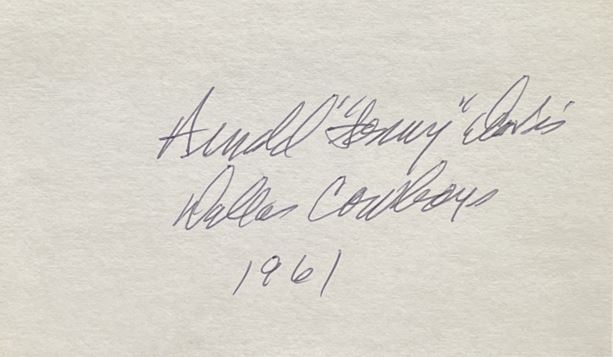 Arnold "Sonny" Davis
Dallas Cowboys
1961